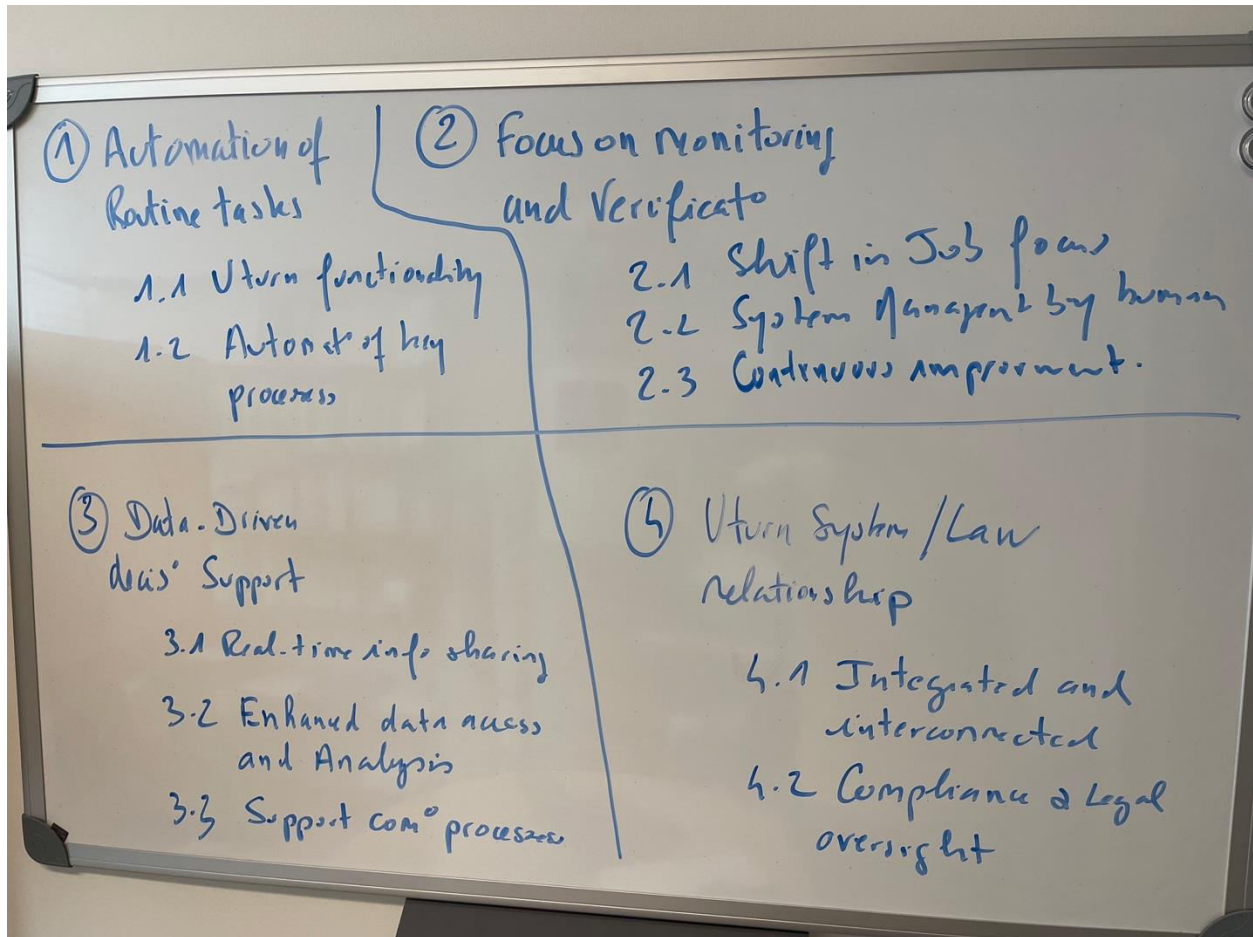 ① Automation of
Routine tasks
1.1 Uturn functionality
1.2 Automat° of key
process
② Focus on Monitoring
and Verificat°
2.1 Shift in Job focus
2.2 System Managment by human
2.3 Continuous improvment.
③ Data-Driven
decis° Support
3.1 Real-time info sharing
3.2 Enhanced data access
and Analysis
3.3 Support com° processes
④ Uturn System/Law
relationship
4.1 Integrated and
interconnected
4.2 Compliance & Legal
oversight